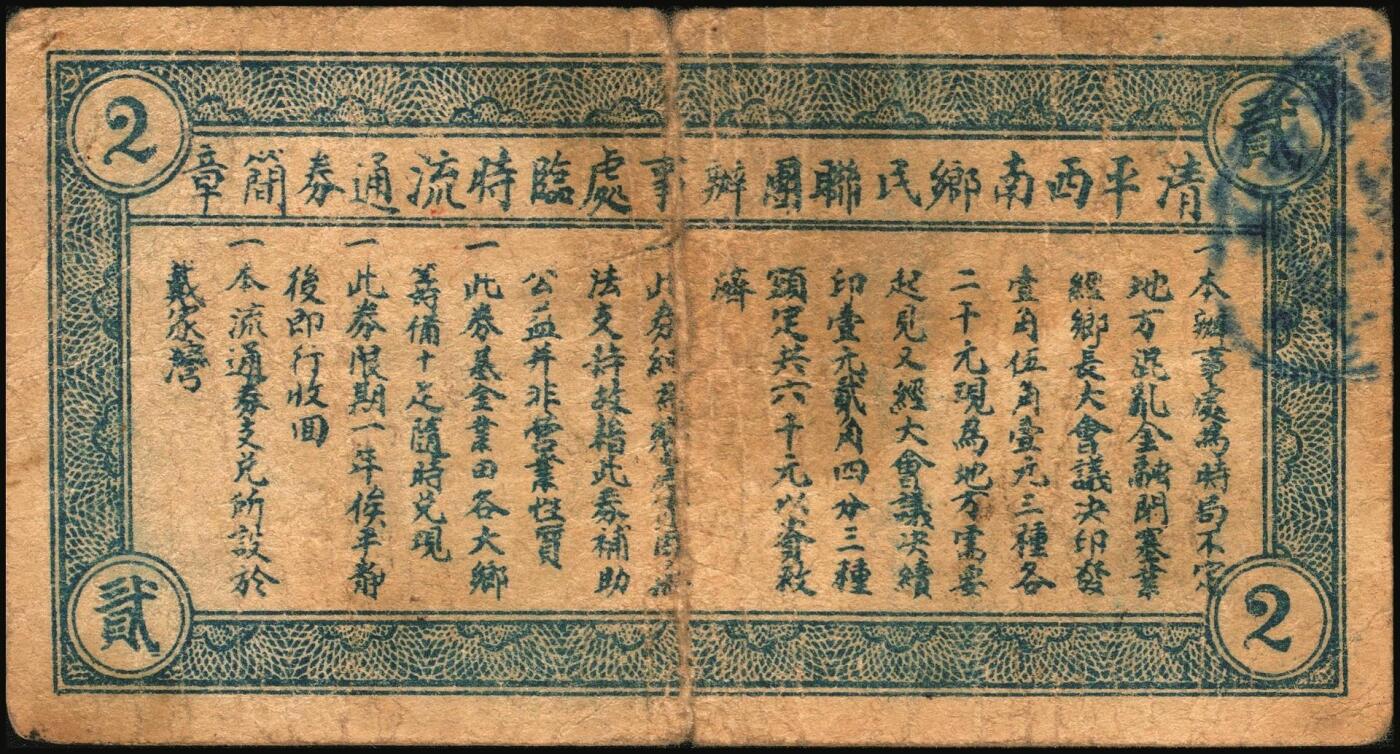 貳
2
清平西南鄉民聯團辦事處臨時流通券簡章
一本辦事處為時局不定
地方混亂金融閉塞業
經鄉長大會議決印發
壹角伍角壹元三種各
二千元現為地方需要
起見又經大會議決續
印壹元貳角四分三種
額定共六千元以資救
濟
一此券
法支持故藉此券補助
公益并非營業性質
一此券基金業由各大鄉
籌備十足隨時兌現
一此券限期一年俟平靜
後即行收回
一本流通券支兌所設於
戴家灣
貳
2